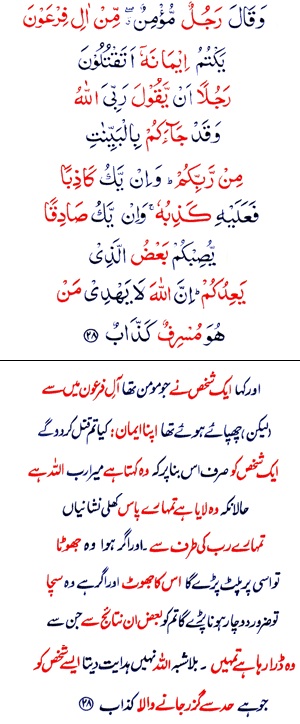 وَقَالَ رَجُلٌ مُّؤْمِنٌ ۖ مِّنْ اٰلِ فِرْعَوْنَ
يَكْتُمُ اِيْمَانَهٗۤ اَتَقْتُلُوْنَ
رَجُلًا اَنْ يَّقُوْلَ رَبِّيَ اللّٰهُ
وَقَدْ جَآءَكُمْ بِالْبَيِّنٰتِ
مِنْ رَّبِّكُمْ ؕ وَاِنْ يَّكُ كَاذِبًا
فَعَلَيْهِ كَذِبُهٗ ۚ وَاِنْ يَّكُ صَادِقًا
يُّصِبْكُمْ بَعْضُ الَّذِيْ
يَعِدُكُمْ ؕ اِنَّ اللّٰهَ لَا يَهْدِيْ مَنْ
هُوَ مُسْرِفٌ كَذَّابٌ ﴿۲۸﴾
اور کہا ایک شخص نے جو مومن تھا آلِ فرعون میں سے
(لیکن) چھپائے ہوئے تھا اپنا ایمان؛ کیا تم قتل کر دو گے
ایک شخص کو صرف اس بنا پر کہ وہ کہتا ہے میرا رب اللہ ہے
حالانکہ وہ لایا ہے تمہارے پاس کھلی نشانیاں
تمہارے رب کی طرف سے ۔ اور اگر ہوا وہ جھوٹا
تو اسی پر پلٹ پڑے گا اس کا جھوٹ اور اگر ہے وہ سچا
تو ضرور دوچار ہونا پڑے گا تم کو بعض ان نتائج سے جن سے
وہ ڈرا رہا ہے تمہیں ۔ بلاشبہ اللہ نہیں ہدایت دیتا ایسے شخص کو
جو ہے حد سے گزر جانے والا کذاب ﴿۲۸﴾